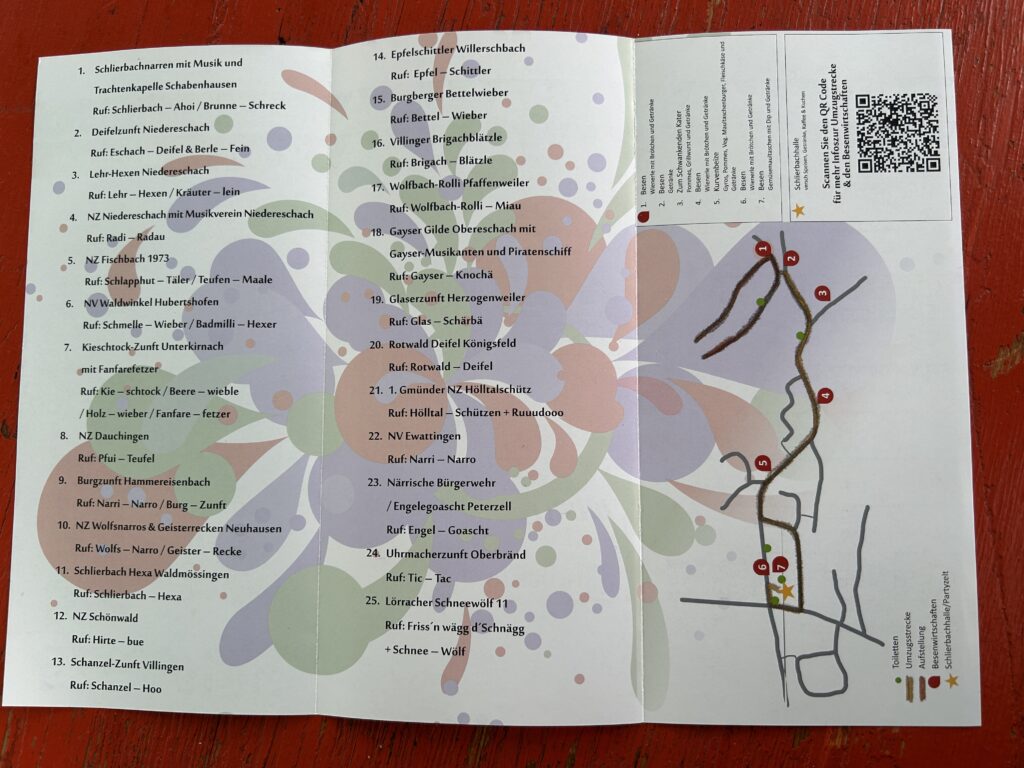 1. Schlierbachnarren mit Musik und
Trachtenkapelle Schabenhausen
Ruf: Schlierbach – Ahoi / Brunne – Schreck
2. Deifelzunft Niedereschach
Ruf: Eschach – Deifel & Berle – Fein
3. Lehr-Hexen Niedereschach
Ruf: Lehr – Hexen / Kräuter – lein
4. NZ Niedereschach mit Musikverein Niedereschach
Ruf: Radi – Radau
5. NZ Fischbach 1973
Ruf: Schlapphut – Täler / Teufen – Maale
6. NV Waldwinkel Hubertshofen
Ruf: Schmelle – Wieber / Badmilli – Hexer
7. Kieschtock-Zunft Unterkirnach
mit Fanfarefetzer
Ruf: Kie – schtock / Beere – wieble
/ Holz – wieber / Fanfare – fetzer
8. NZ Dauchingen
Ruf: Pfui – Teufel
9. Burgzunft Hammereisenbach
Ruf: Narri – Narro / Burg – Zunft
10. NZ Wolfsnarros & Geisterrecken Neuhausen
Ruf: Wolfs – Narro / Geister – Recke
11. Schlierbach Hexa Waldmössingen
Ruf: Schlierbach – Hexa
12. NZ Schönwald
Ruf: Hirte – bue
13. Schanzel-Zunft Villingen
Ruf: Schanzel – Hoo
14. Epfelschittler Willerschbach
Ruf: Epfel – Schittler
15. Burgberger Bettelwieber
Ruf: Bettel – Wieber
16. Villinger Brigachblätzle
Ruf: Brigach – Blätzle
17. Wolfbach-Rolli Pfaffenweiler
Ruf: Wolfbach-Rolli – Miau
18. Gayser Gilde Obereschach mit
Gayser-Musikanten und Piratenschiff
Ruf: Gayser – Knochä
19. Glaserzunft Herzogenweiler
Ruf: Glas – Schärbä
20. Rotwald Deifel Königsfeld
Ruf: Rotwald – Deifel
21. 1. Gmünder NZ Hölltalschütz
Ruf: Hölltal – Schützen + Ruuudooo
22. NV Ewattingen
Ruf: Narri – Narro
23. Närrische Bürgerwehr
/ Engelegoascht Peterzell
Ruf: Engel – Goascht
24. Uhrmacherzunft Oberbränd
Ruf: Tic – Tac
25. Lörracher Schneewölf 11
Ruf: Friss´n wägg d´Schnägg
+ Schnee – Wölf
1. Besen
Wienerle mit Brötchen und Getränke
2. Besen
Getränke
3. Zum Schwankenden Kater
Pommes, Grillwurst und Getränke
4. Besen
Wienerle mit Brötchen und Getränke
5. Kurvenbeize
Gyros, Pommes, Veg. Maultaschenburger, Fleischkäse und
Getränke
6. Besen
Wienerle mit Brötchen und Getränke
7. Besen
Gemüsemaultaschen mit Dip und Getränke
Schlierbachhalle
versch Speisen, Getränke, Kaffee & Kuchen
Scannen Sie den QR Code
für mehr Infoszur Umzugstrecke
& den Besenwirtschaften
1
2
3
4
5
6
7
Toiletten
Umzugsstrecke
Aufstellung
Besenwirtschaften
Schlierbachhalle/Partyzelt